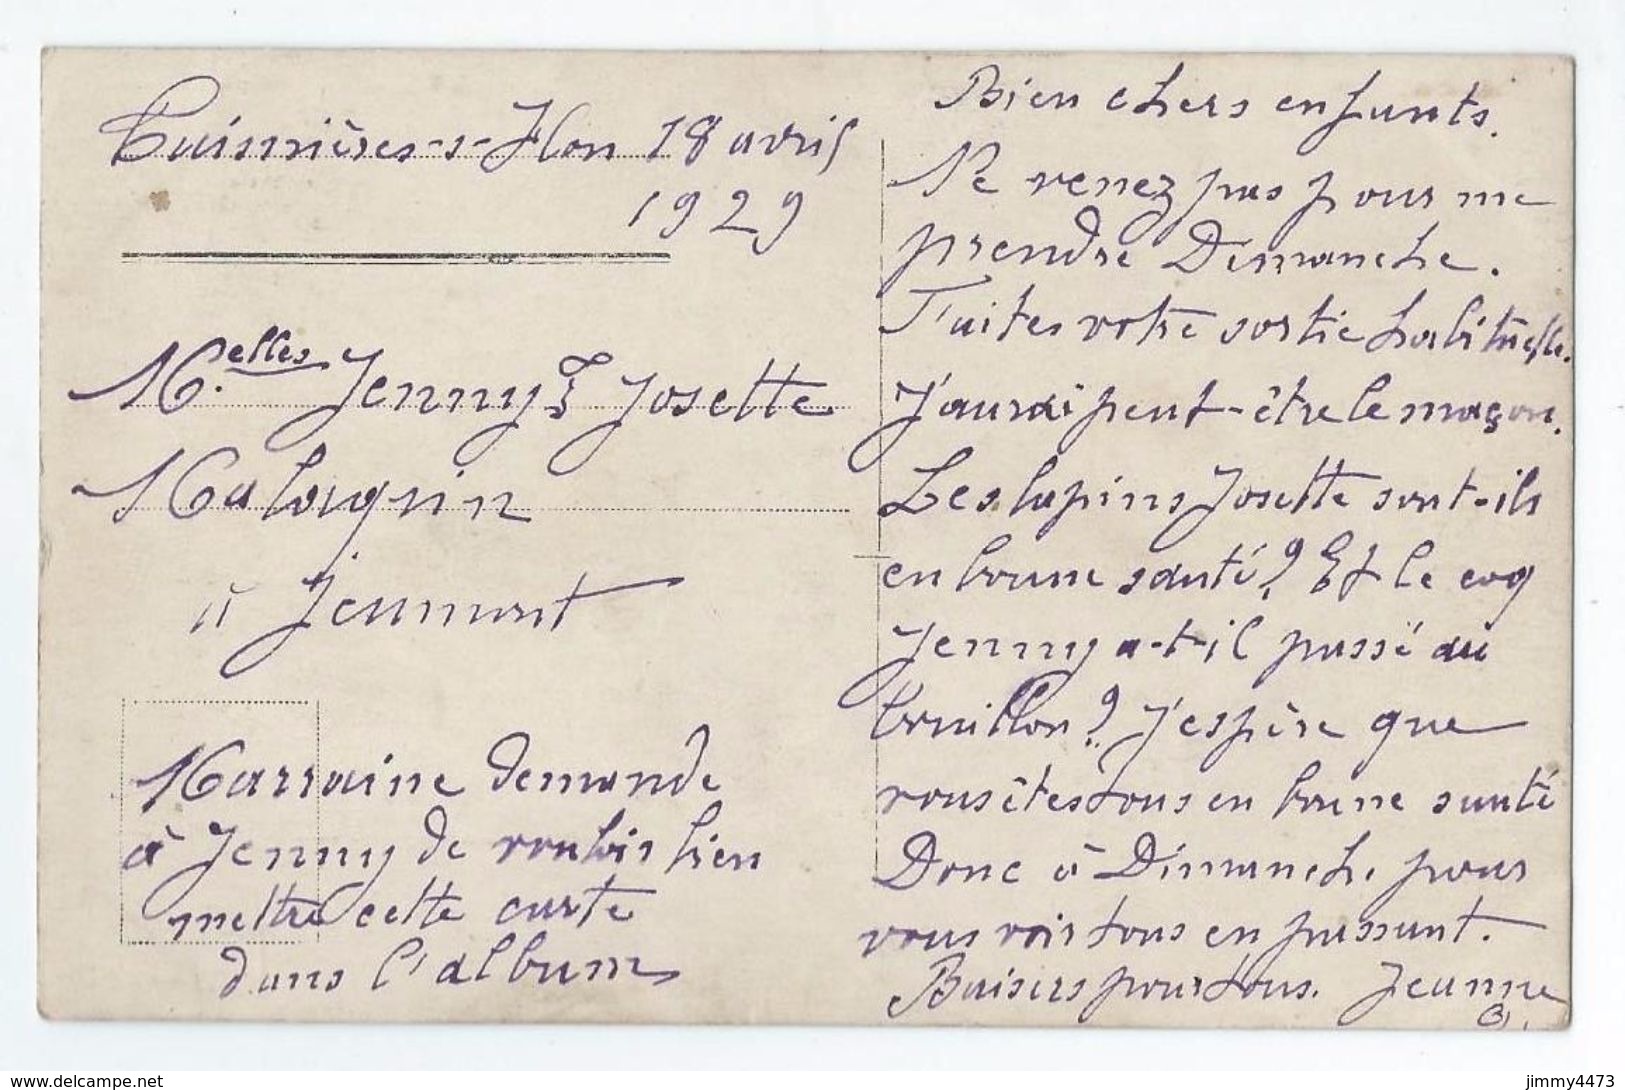 Taisnières-s-Hon 18 avril
1929
Melles Jenny & Josette
Malaquin
à Jeumont
Marraine demande
à Jenny de vouloir bien
mettre cette carte
dans l'album
Bien chers enfants.
Ne venez pas pour me
prendre Dimanche.
Faites votre sortie habituelle.
J'aurai peut-être le maçon.
Les lapins Josette sont-ils
en bonne santé? Et le coq
Jenny a-t-il passé au
bouillon? J'espère que
vous êtes tous en bonne santé
Donc à Dimanche pour
vous voir tous en passant.
Baisers pour tous. Jeanne
jimmy4473
www.delcampe.net